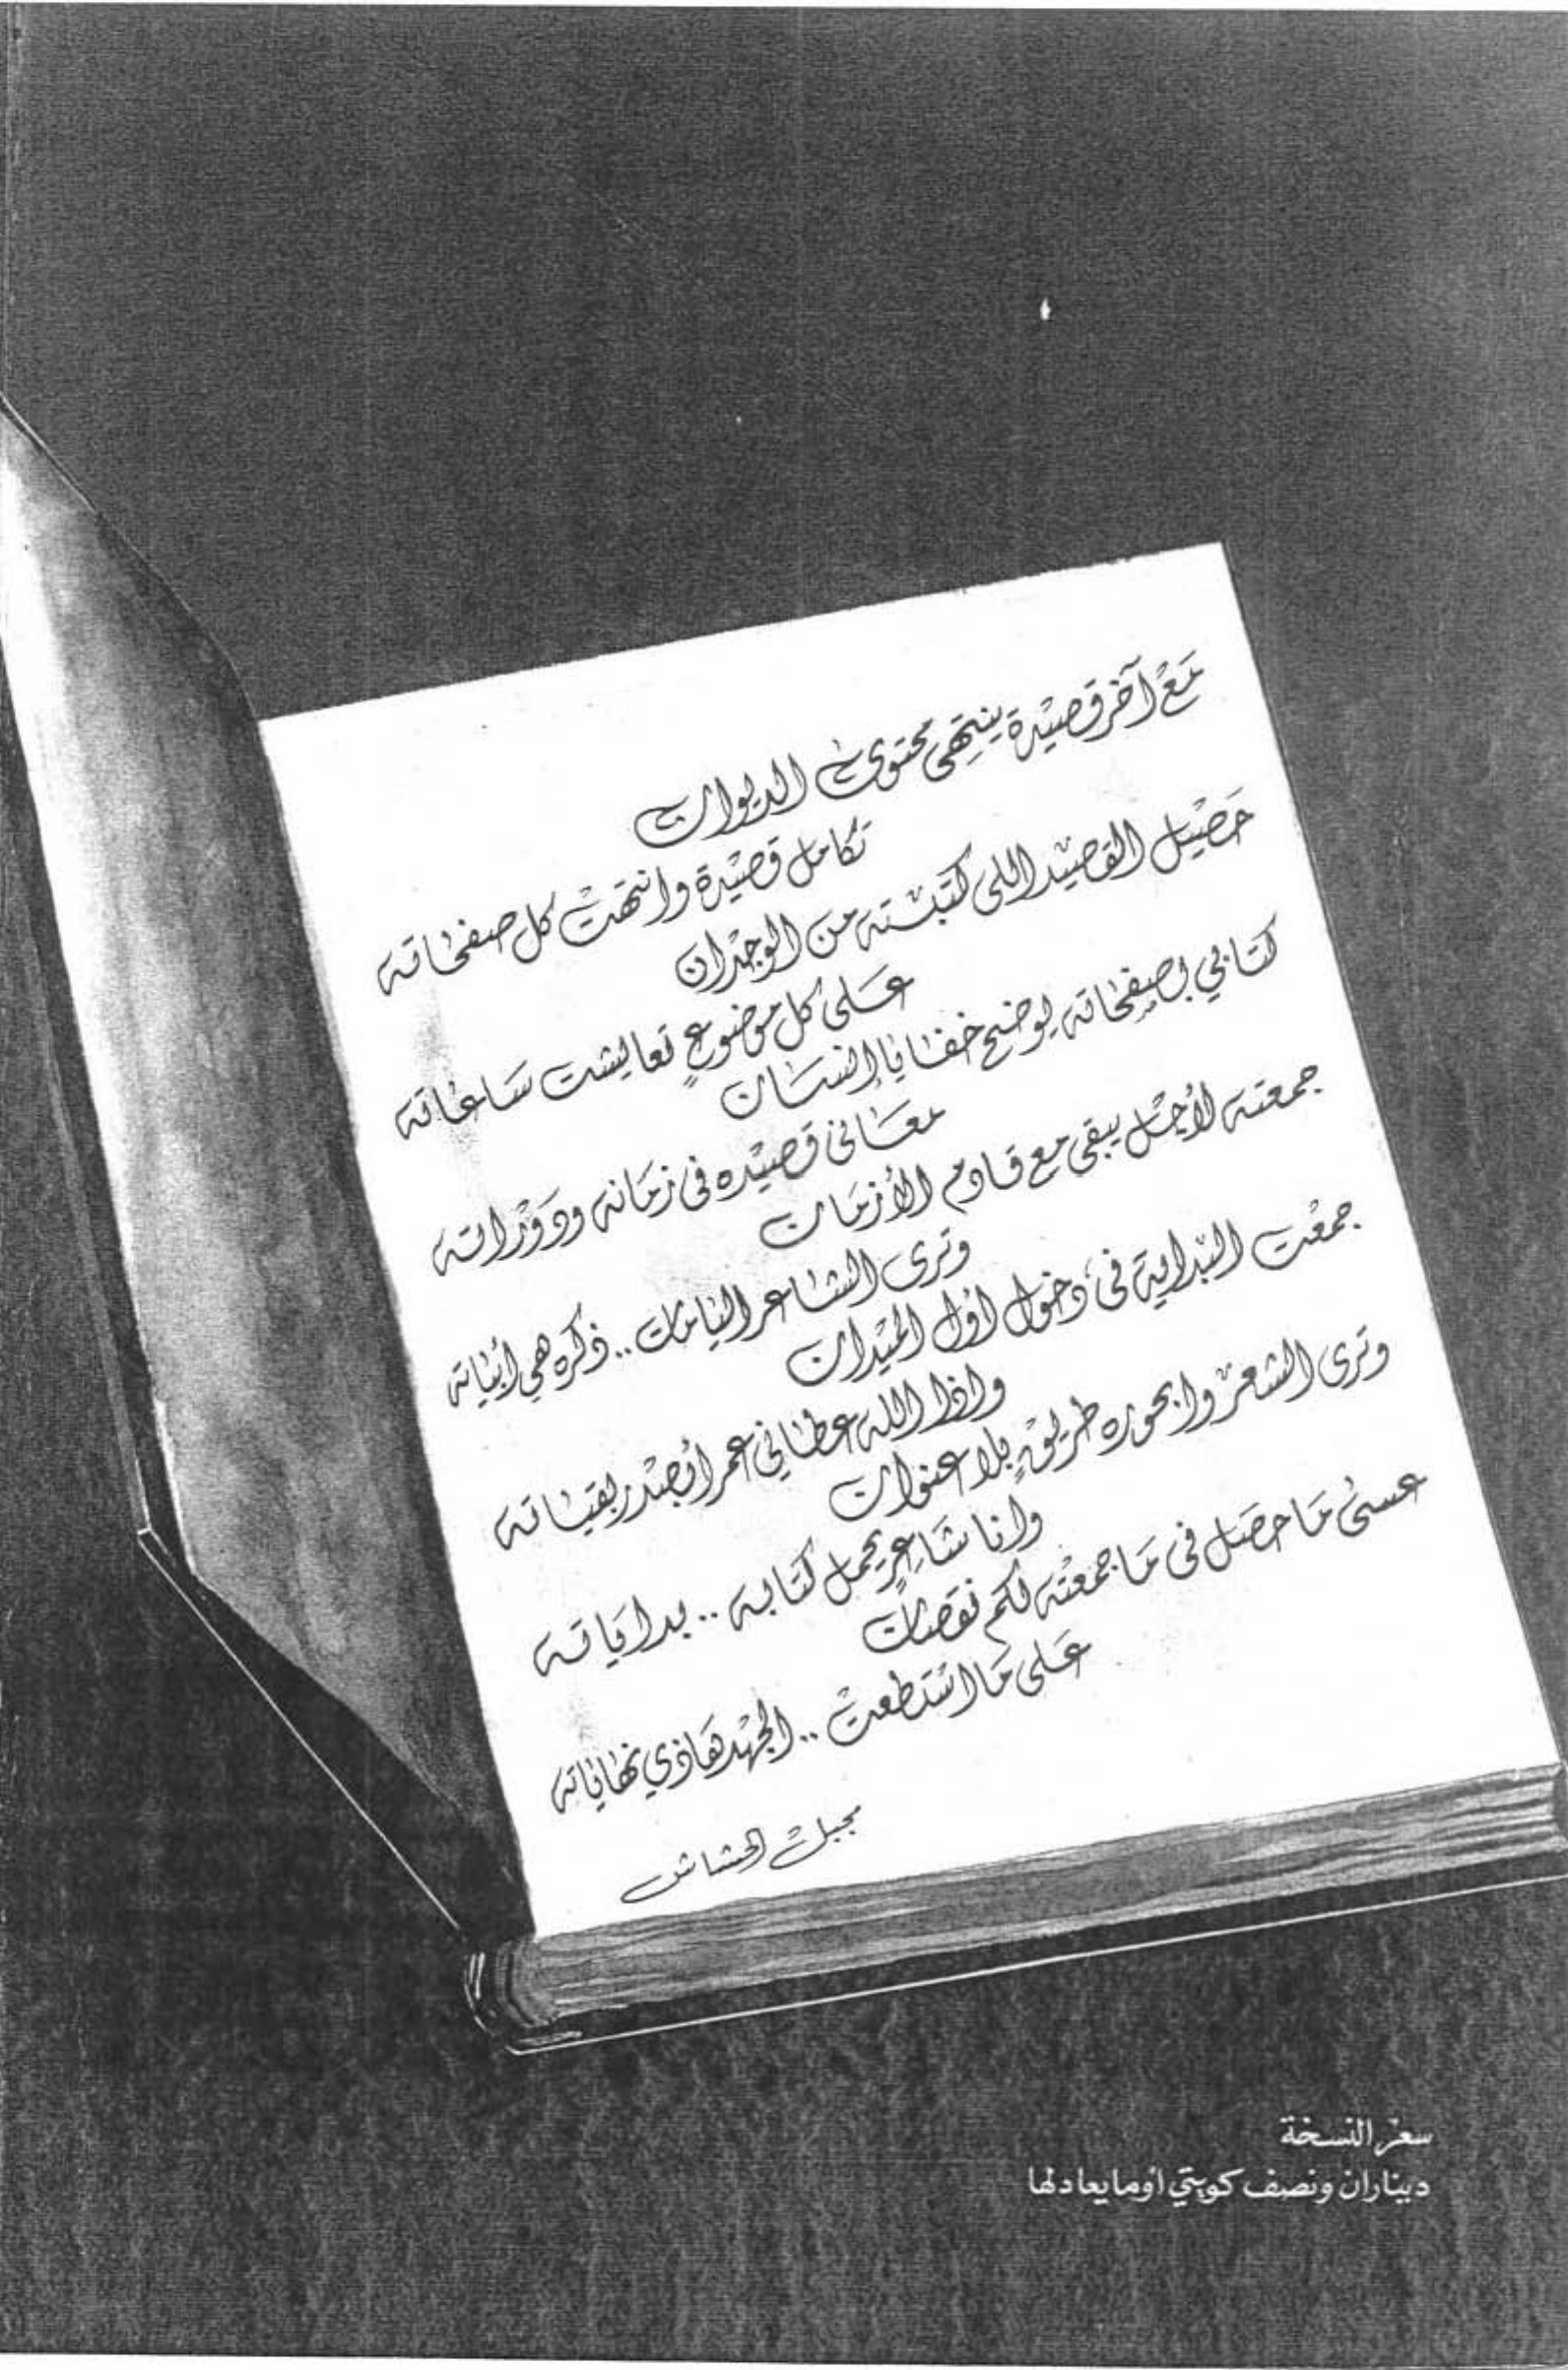 مَعْ آخر قصيْدة ينتهي محتوىٰ الديوان
تكامل قصيْدة وانتهتْ كل صفحاته
حَصْيل القصيْد اللي كتبْته من الوجْدان
عَلىٰ كل موضوعٍ تعايشت سَاعاته
كتابي بصفحاته يوضح خفايا إنسان
معَاني قصيْده في زمَانه ودَوْراته
جمعته لأجْل يبقى مع قادم الأزمَان
وترى الشاعر اليامات .. ذكره هي أبياته
جمعْت البْداية في دخول أول الميْدان
واذا الله عطاني عمر أبصْدر بقيّاته
وترى الشعرْ وابحوره طريقٍ بلا عنوان
وانا شَاعرٍ يحمل كتابه .. بداياته
عسىٰ مَا حصَل في مَا جمعْته لكم نقصان
عَلى مَا اسْتطعتْ .. الجهْد هَاذي نهاياته
مجبل الحشاش
سعر النسخة
ديناران ونصف كويتي أو ما يعادلها